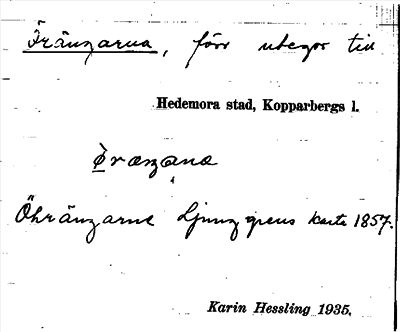 Fränzarna, förr utegor till
Hedemora stad, Kopparbergs l.
Öhränzarne Ljunggrens karta 1857.
Karin Hessling 1935.